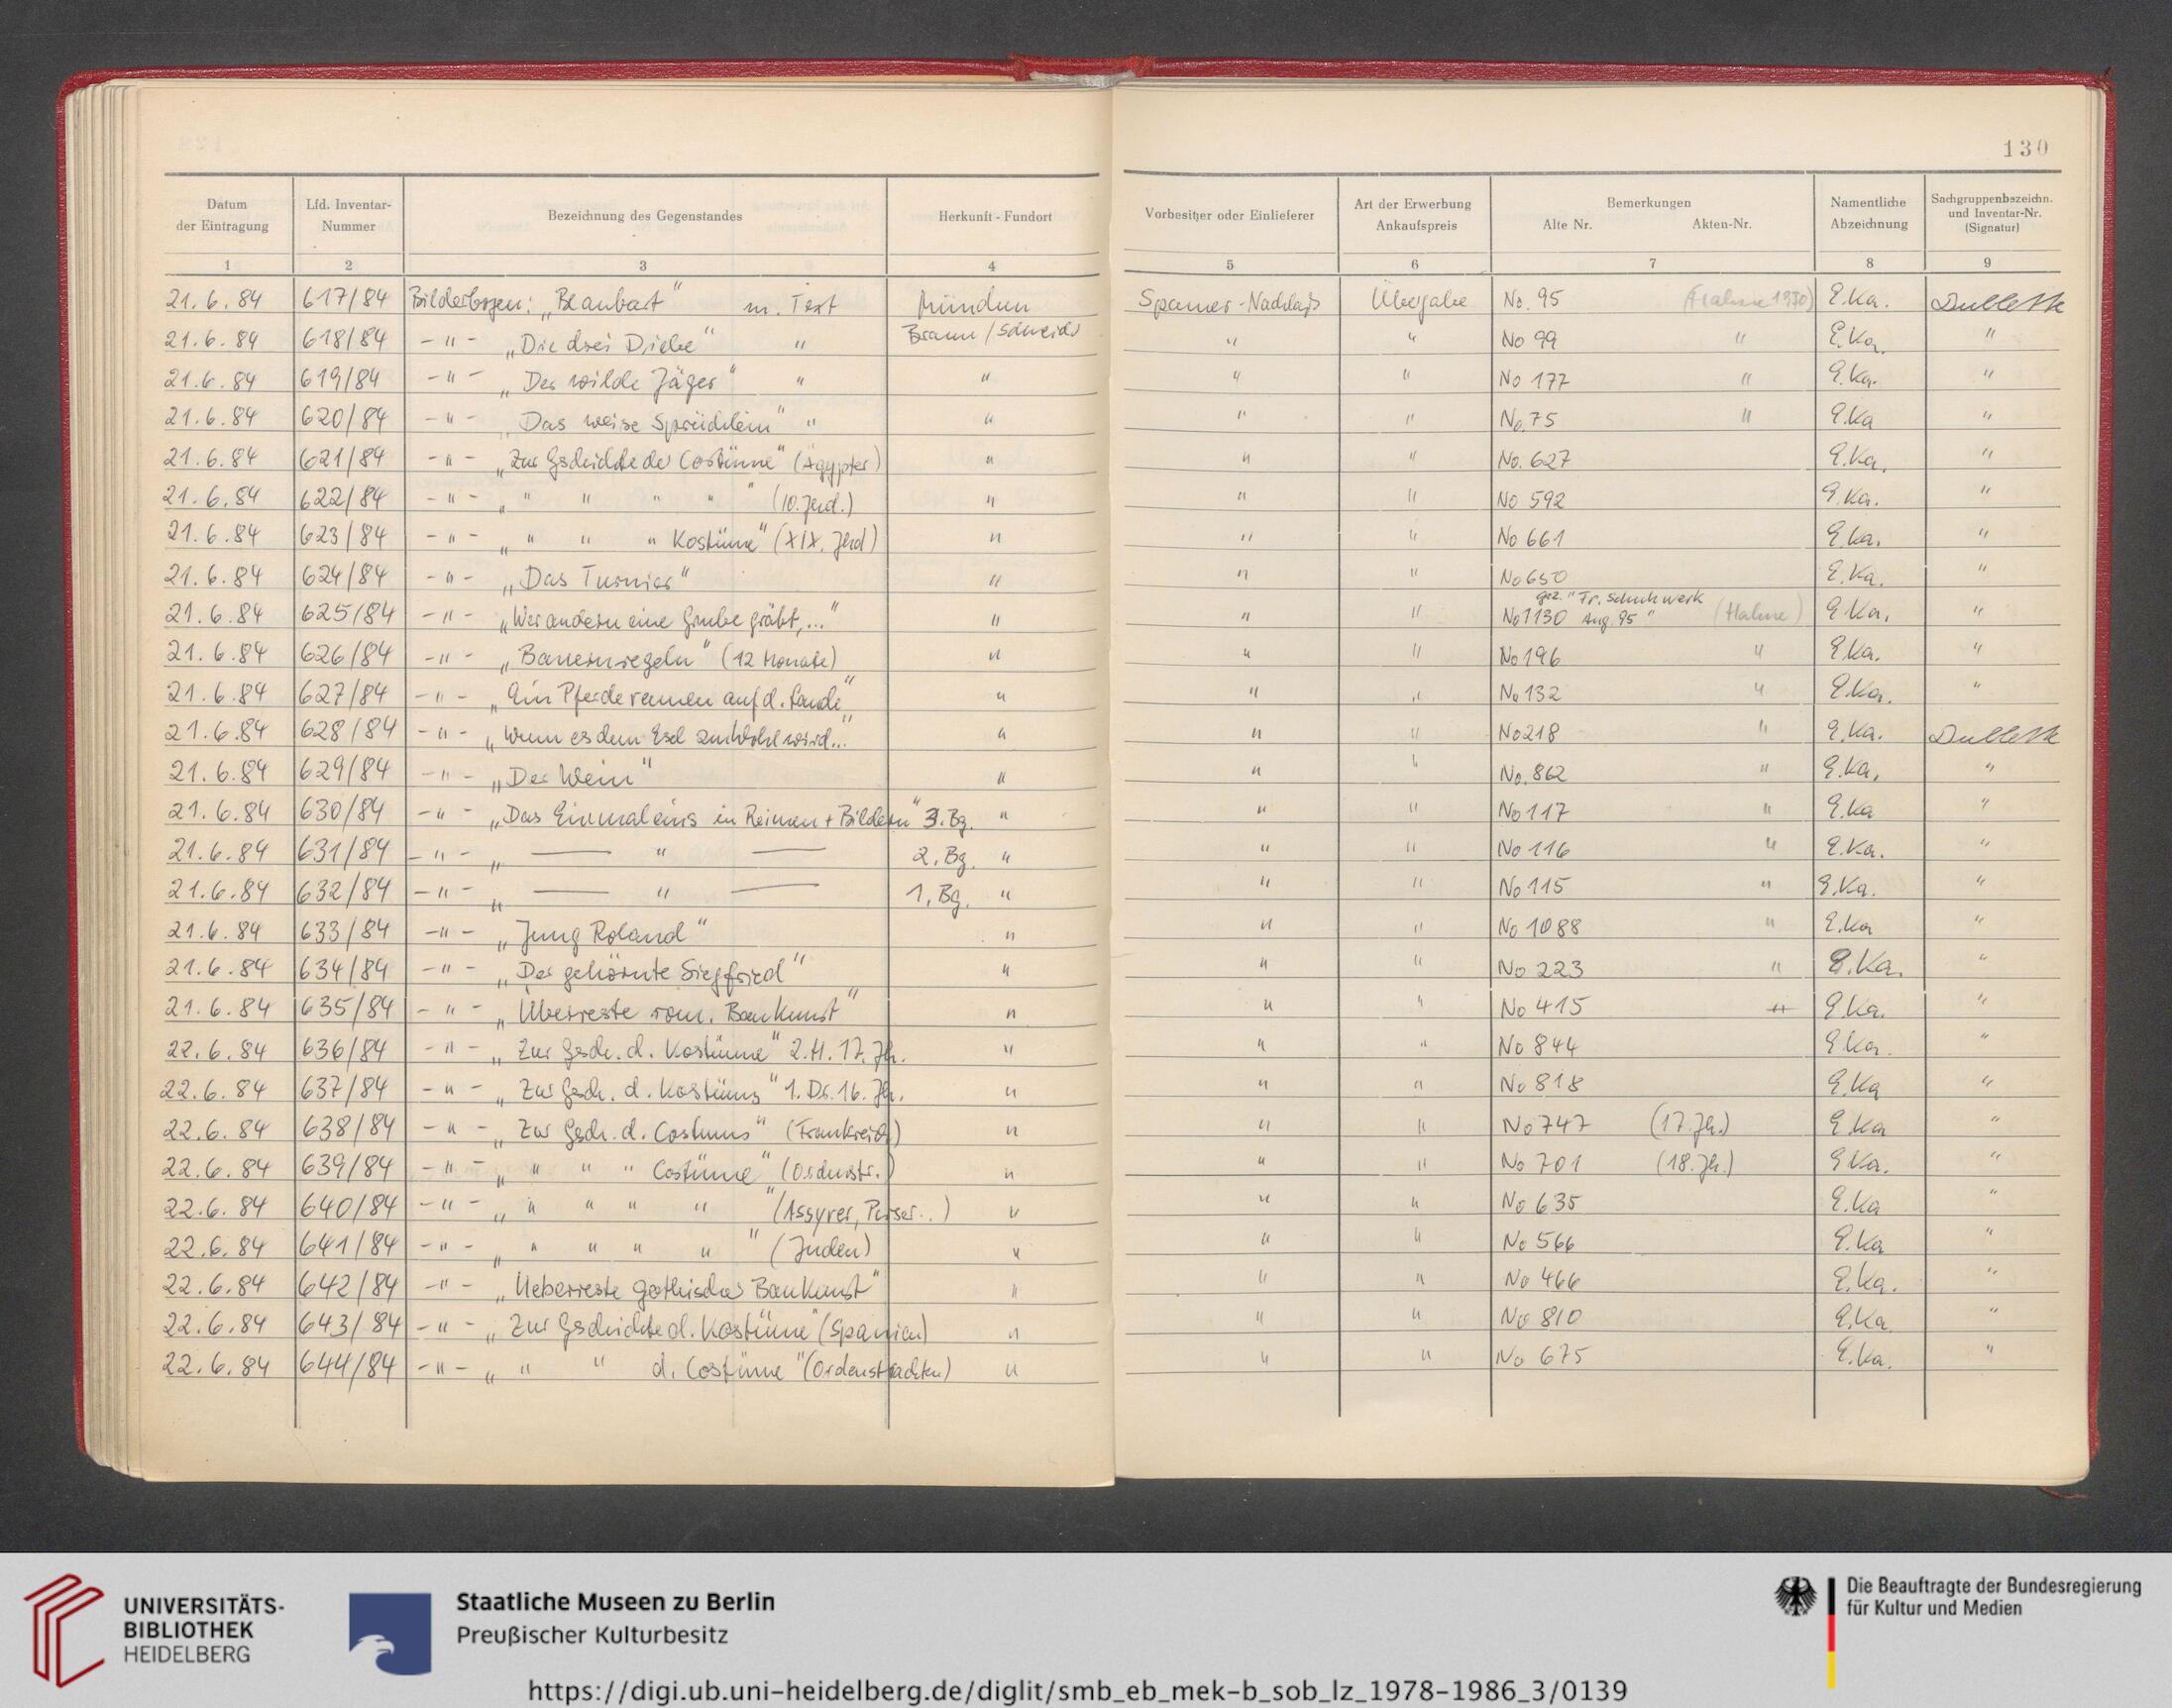 130
Datum der Eintragung | Lfd. Inventar-Nummer | Bezeichnung des Gegenstandes | Herkunft - Fundort | Vorbesitzer oder Einlieferer | Art der Erwerbung Ankaufspreis | Bemerkungen Alte Nr. Akten-Nr. | Namentliche Abzeichnung | Sachgruppenbezeichn. und Inventar-Nr. (Signatur)
1 | 2 | 3 | 4 | 5 | 6 | 7 | 8 | 9
21.6.84 | 617/84 | Bilderbogen: „Blaubart“ m. Text | München | Spamer-Nachlaß | Übergabe | No. 95 (Hahne 1930) | E.Ka.
21.6.84 | 618/84 | -"- „Die drei Diebe“ " | Braun/Schneider | " | " | No 99 " | E.Ka. | "
21.6.84 | 619/84 | -"- „Der wilde Jäger“ " | " | " | " | No 177 " | E.Ka. | "
21.6.84 | 620/84 | -"- „Das weise Sprüchlein“ " | " | " | " | No. 75 " | E.Ka | "
21.6.84 | 621/84 | -"- „Zur Gschichte der Costüme“ (Ägypter) | " | " | " | No. 627 | E.Ka. | "
21.6.84 | 622/84 | -"- „ " " " " “ (10. Jhd.) | " | " | " | No 592 | E.Ka. | "
21.6.84 | 623/84 | -"- „ " " " Kostüme“ (XIX. Jhd) | " | " | " | No 661 | E.Ka. | "
21.6.84 | 624/84 | -"- „Das Turnier“ | " | " | " | No 650 | E.Ka. | "
21.6.84 | 625/84 | -"- „Wer andern eine Grube gräbt,...“ | " | " | " | No 1130 gez. "Fr. Schuhwerk Aug. 95" (Hahne) | E.Ka. | "
21.6.84 | 626/84 | -"- „Bauernregeln“ (12 Monate) | " | " | " | No 196 " | E.Ka. | "
21.6.84 | 627/84 | -"- „Ein Pferderennen auf d. Lande“ | " | " | " | No 132 " | E.Ka. | "
21.6.84 | 628/84 | -"- „Wenn es dem Esel zu wohl wird...“ | " | " | " | No 218 " | E.Ka.
21.6.84 | 629/84 | -"- „Der Wein“ | " | " | " | No. 862 " | E.Ka. | "
21.6.84 | 630/84 | -"- „Das Einmaleins in Reimen + Bildern“ 3. Bg. | " | " | " | No 117 " | E.Ka | "
21.6.84 | 631/84 | -"- „ — " — 2. Bg. | " | " | " | No 116 " | E.Ka. | "
21.6.84 | 632/84 | -"- „ — " — 1. Bg. | " | " | " | No 115 " | E.Ka. | "
21.6.84 | 633/84 | -"- „Jung Roland“ | " | " | " | No 1088 " | E.Ka | "
21.6.84 | 634/84 | -"- „Der gehörnte Siegfried“ | " | " | " | No 223 " | E.Ka. | "
21.6.84 | 635/84 | -"- „Überreste rom. Baukunst“ | " | " | " | No 415 " | E.Ka. | "
22.6.84 | 636/84 | -"- „Zur Gesch. d. Kostüme“ 2. H. 17. Jh. | " | " | " | No 844 | E.Ka. | "
22.6.84 | 637/84 | -"- „Zur Gesch. d. Kostüms“ 1. Dr. 16. Jh. | " | " | " | No 818 | E.Ka | "
22.6.84 | 638/84 | -"- „Zur Gesch. d. Costums“ (Frankreich) | " | " | " | No 747 (17. Jh.) | E.Ka | "
22.6.84 | 639/84 | -"- „ " " " Costüme“ (Ordenstr.) | " | " | " | No 701 (18. Jh.) | E.Ka. | "
22.6.84 | 640/84 | -"- „ " " " " “ (Assyrer, Perser..) | " | " | " | No 635 | E.Ka | "
22.6.84 | 641/84 | -"- „ " " " " “ (Juden) | " | " | " | No 566 | E.Ka | "
22.6.84 | 642/84 | -"- „Ueberreste gothischer Baukunst“ | " | " | " | No 466 | E.Ka. | "
22.6.84 | 643/84 | -"- „Zur Gschichte d. Kostüme“ (Spanien) | " | " | " | No 810 | E.Ka. | "
22.6.84 | 644/84 | -"- „ " " d. Costüme“ (Ordenstrachten) | " | " | " | No 675 | E.Ka. | "
UNIVERSITÄTS-
BIBLIOTHEK
HEIDELBERG
Staatliche Museen zu Berlin
Preußischer Kulturbesitz
Die Beauftragte der Bundesregierung
für Kultur und Medien
https://digi.ub.uni-heidelberg.de/diglit/smb_eb_mek-b_sob_lz_1978-1986_3/0139